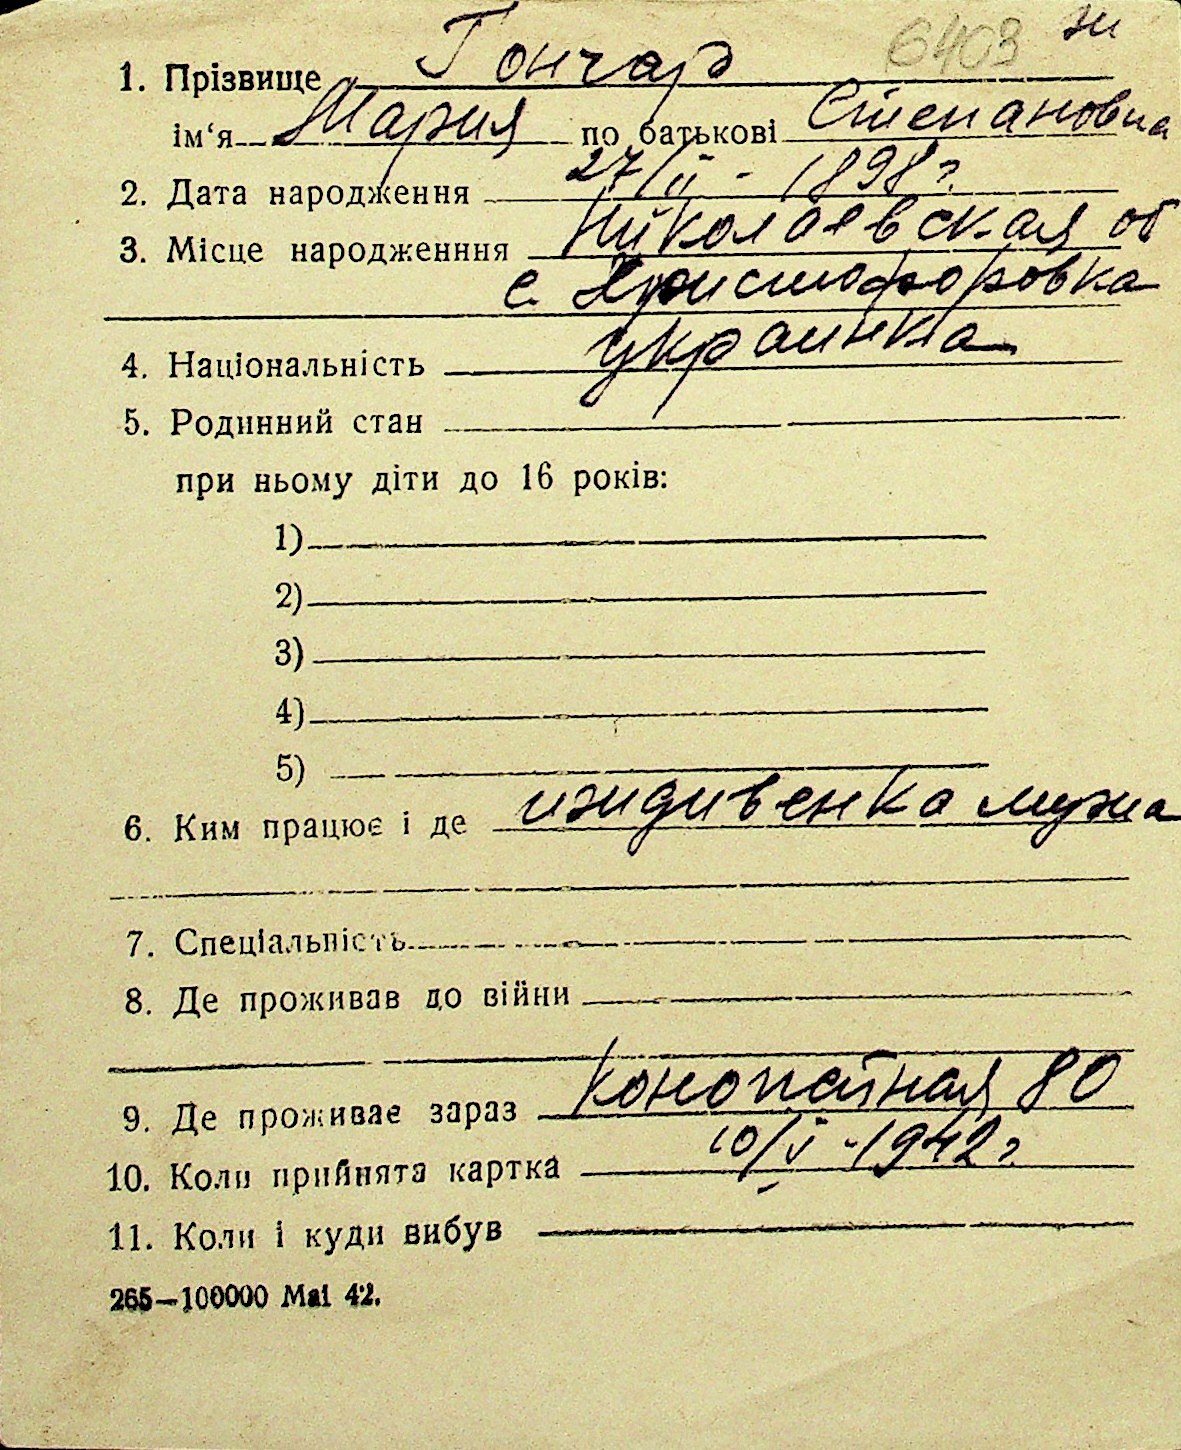 6403 жи
1. Прізвище Гончар
ім‘я Мария по батькові Степановна
2. Дата народження 27/II - 1898 г.
3. Місце народженння Николаевская об
с. Христофоровка
4. Національність украинка
5. Родинний стан
при ньому діти до 16 років:
1)
2)
3)
4)
5)
6. Ким працює і де иждивенка мужа
7. Спеціальність
8. Де проживав до війни
9. Де проживає зараз 80
10. Коли прийнята картка 10/V - 1942 г.
11. Коли і куди вибув
265—100000 Mai 42.